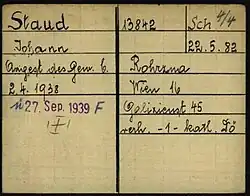 Staud
13842
Sch 4/4
Johann
22.5.82
Angest des Gew. C.
Rohrzna
2.4.1938
Wien 16
n 27. Sep. 1939 F
Galizienst 45
I
verh. -1- kath. Dö